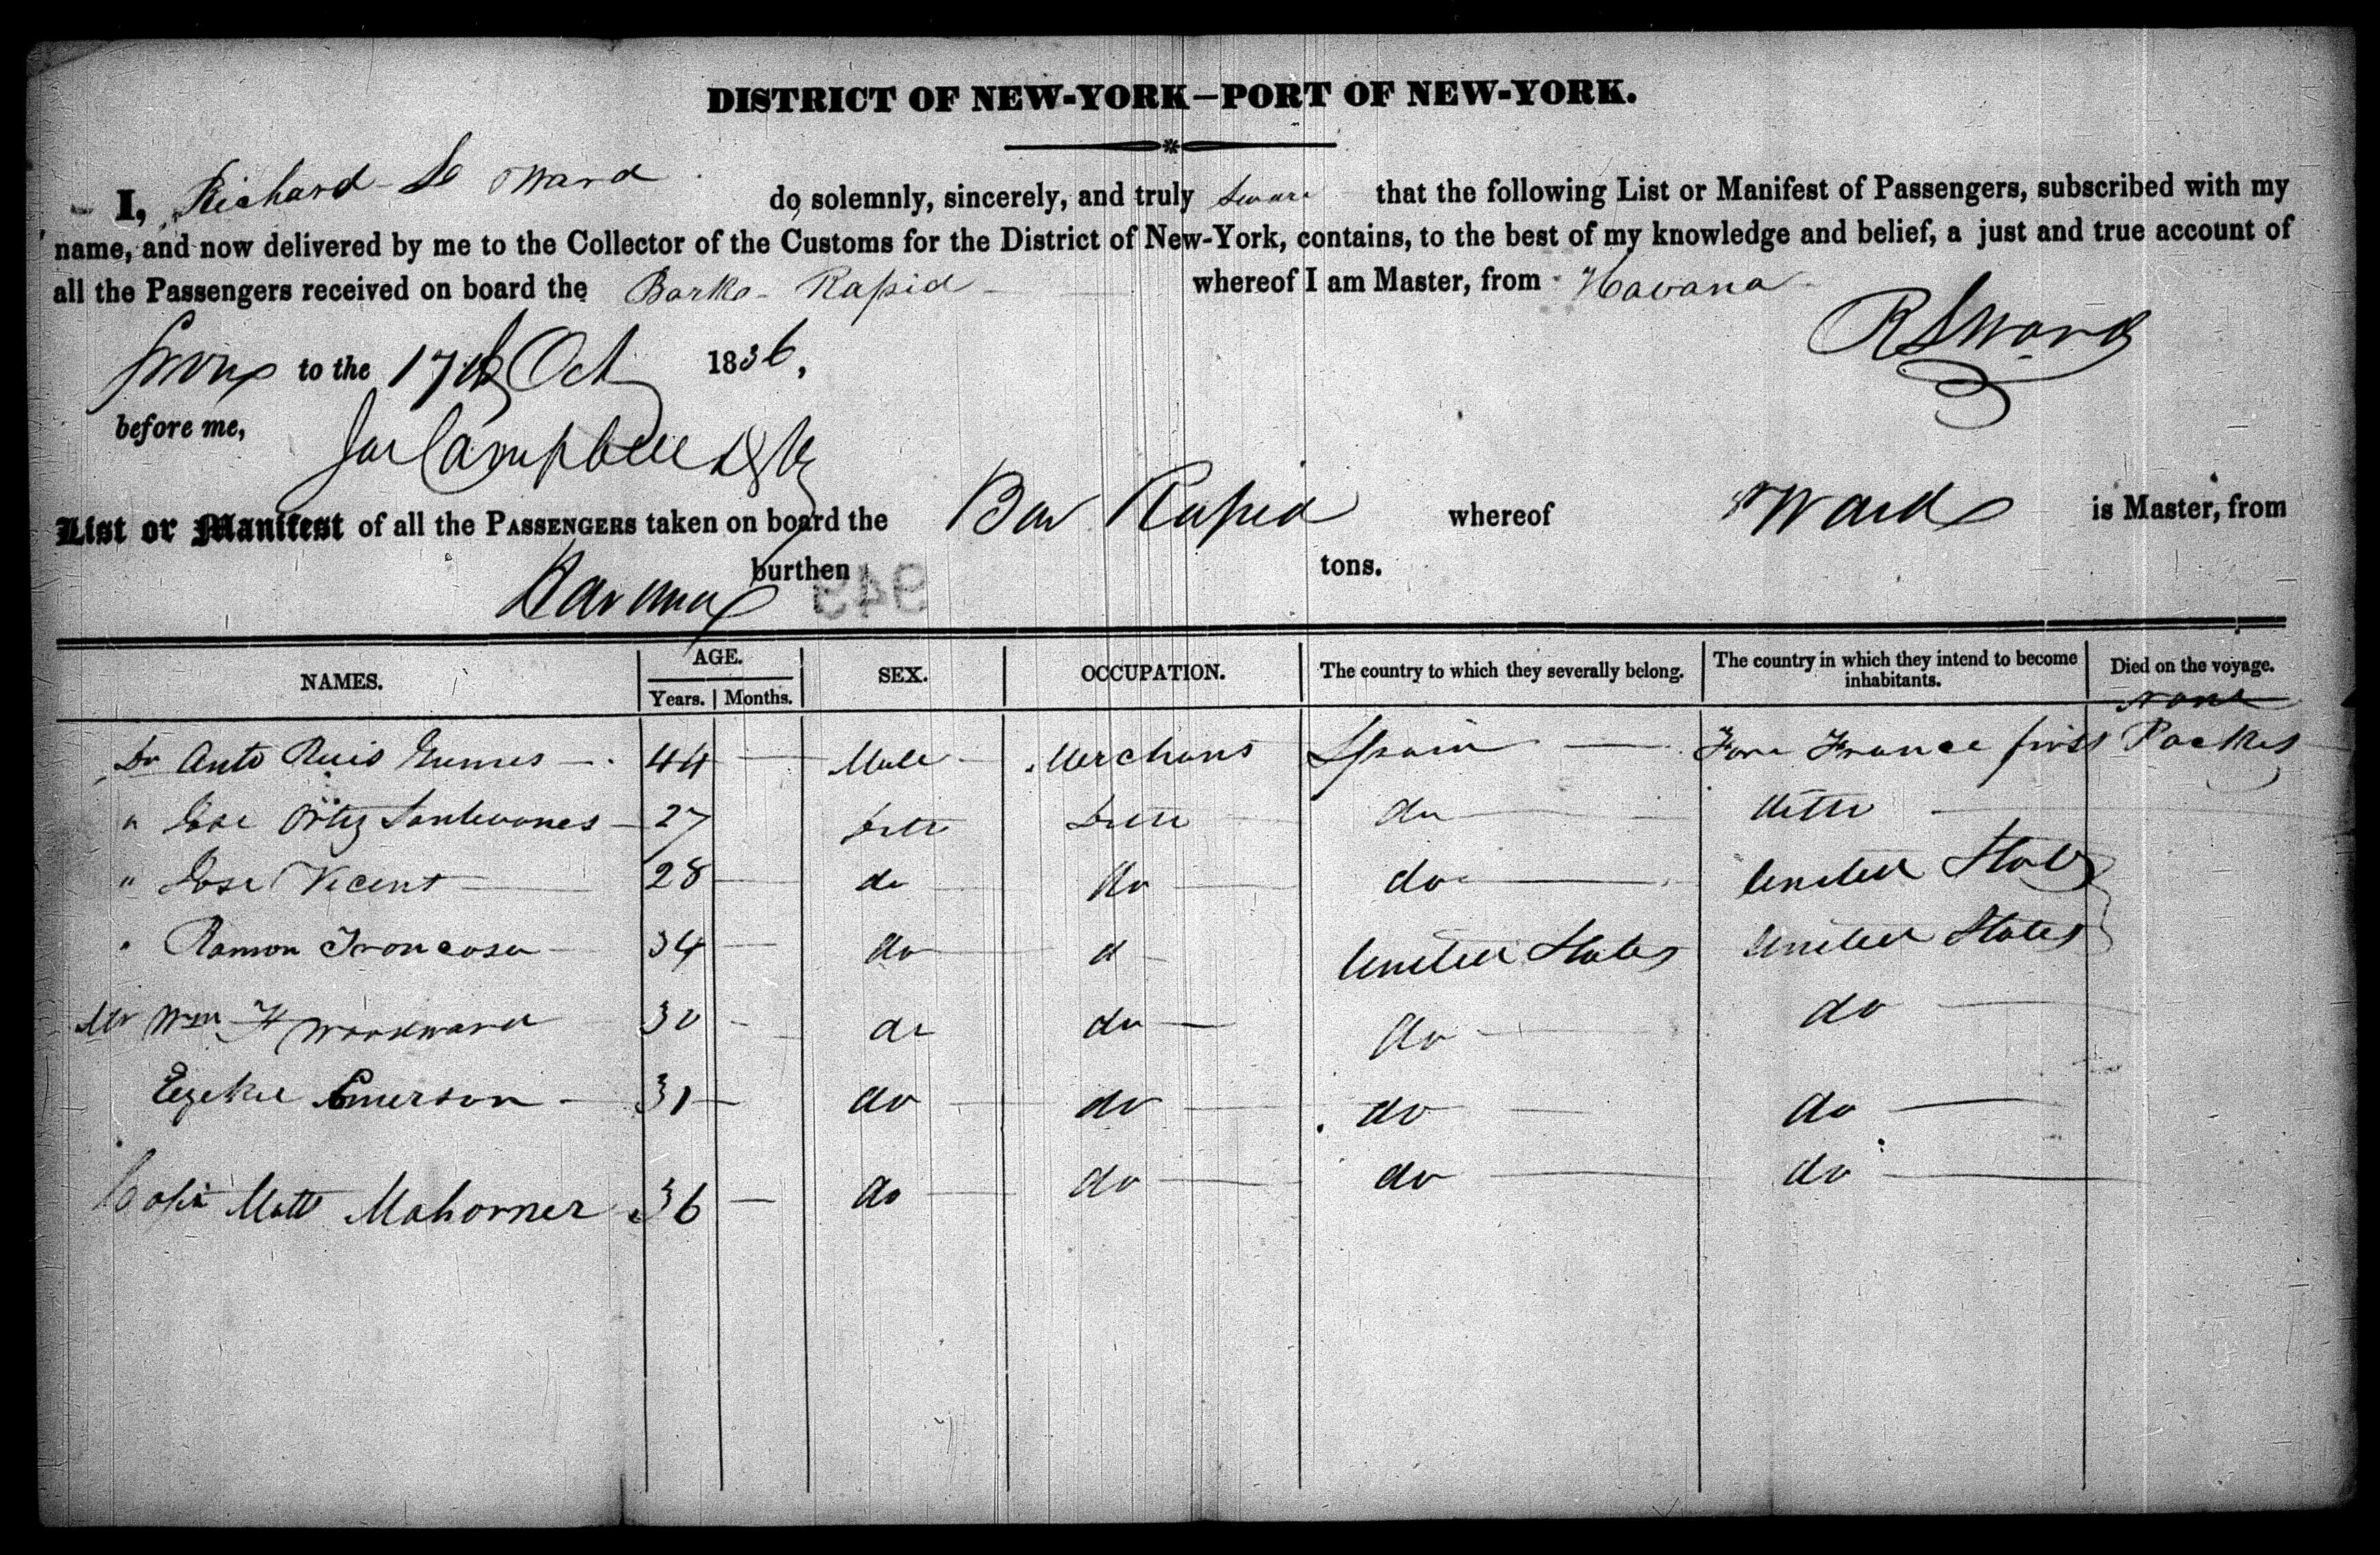 DISTRICT OF NEW-YORK—PORT OF NEW-YORK.
I, Richard S Ward do solemnly, sincerely, and truly Sware that the following List or Manifest of Passengers, subscribed with my
name, and now delivered by me to the Collector of the Customs for the District of New-York, contains, to the best of my knowledge and belief, a just and true account of
all the Passengers received on board the Barke Rapid whereof I am Master, from Havana
R S Ward
Sworn to the 17th Oct 1836,
before me,
Campbell
List or Manifest of all the PASSENGERS taken on board the Bar Rapid whereof Ward is Master, from
Havana burthen tons.
949
NAMES. AGE. SEX. OCCUPATION. The country to which they severally belong. The country in which they intend to become inhabitants. Died on the voyage.
Years. Months.
none
Dn Anto Ruis 44 — Male Merchant Spain — For France first Packet
" Jose Ortiz 27 Ditto Ditto do ditto
" Jose Vicent 28 — do do do United States
" Ramon Troncoso 34 — do d United States United States
Mr Wm H Woodward 30 - do do do do
Ezekiel Emerson 31 — do do do do
Capt Matt Mahorner 36 — do do do do